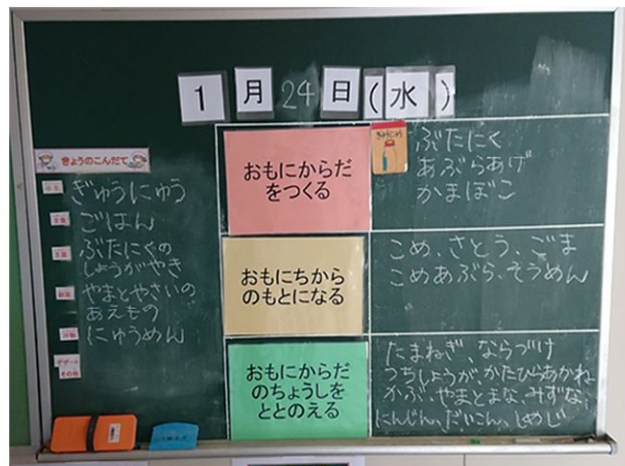 1月24日(水)
きょうのこんだて
ぎゅうにゅう
ごはん
ぶたにくの
しょうがやき
やまとやさいの
あえもの
にゅうめん
デザート
その他
おもにからだ
をつくる
ぎゅうにゅう
ぶたにく
あぶらあげ
かまぼこ
おもにちから
のもとになる
こめ、さとう、ごま
こめあぶら、そうめん
おもにからだ
のちょうしを
ととのえる
たまねぎ、ならづけ
つちしょうが、かたひらあかね
かぶ、やまとまな、みずな、
にんじん、だいこん、しめじ